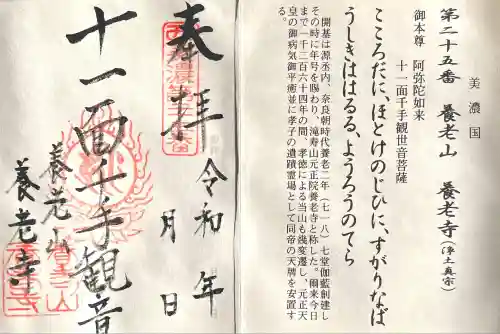 美濃国
第二十五番 養老山 養老寺(浄土真宗)
御本尊 阿弥陀如来
十一面千手観世音菩薩
こころだに、ほとけのじひに、すがりなば
うしきははるる、ようろうのてら
開基は源丞内、奈良朝時代養老二年(七一八)七堂伽藍創建し
その時に年号を賜わり、滝寿山元正院養老寺と称した。爾来今日
まで一千三百六十四年の間、孝徳による当山も幾変遷し、元正天
皇の御病気御平癒並に孝子の遺蹟霊場として同帝の天牌を安置す
る。
奉拝
令和 年
月 日
十一面千手観音
養老山
養老寺